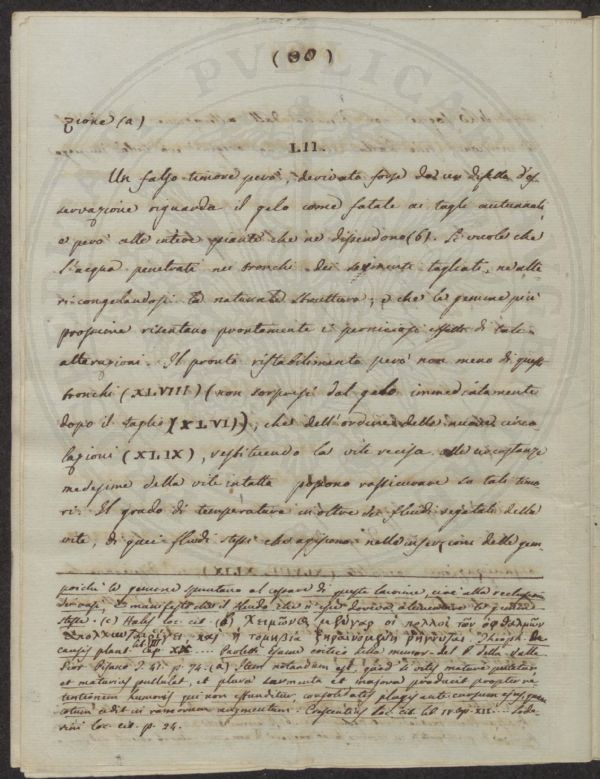 (90)
zione (a)
LII.
Un falso timore però, derivato forse da un difetto d'os
servazione riguarda il gelo come fatale ai tagli autunnali,
e però alle intere piante che ne dipendono (b). Si vuole che
l'acqua penetrati nei bronchi dei sarmenti tagliati, ne alte
ri congelandosi la naturale struttura; e che le gemme più
prossime risentano prontamente i perniciosi effetti di tale
alterazioni. Il pronto ristabilimento però non meno di questi
bronchi (XLVIII) (non sorpresi dal gelo immediatamente
dopo il taglio (XLVI)), che dell'ordine delle nuove circo
lazioni (XLIX), restituendo la vite recisa alle circostanze
medesime della vite intatta possono rassicurare su tali timo
ri. Il grado di temperatura inoltre dei fluidi vegetali della
vite, di quei fluidi stessi che appiono nelle inserzioni delle gem-
poichè le gemme spuntano al cessare di queste lacrime, cioè alla
è manifesto che il fluido che doveva alimentare le gemme
stesse. (c) Hales loc. cit. (b) Χειμῶνος οἱ πολλοὶ τῶν ὀφθαλμῶν
καὶ ἡ Theoph. De
causis plant. lib. III cap. XX.... Paoletti esame critico della memor. del P. della Valle
Fior. Pisano p. 74. (a) Item notandum est, quod si vitis mature putetur
et maturius pullulet, et plura sarmenta et majora producit propter re
tentionem humoris qui non effunditur, consolidatis plagis ante cursum ejus, quem
totum cedit in ramorum augmentum. Crescentius loc. cit. lib. IV cap. XII.... Sode
rini loc. cit. p. 24.